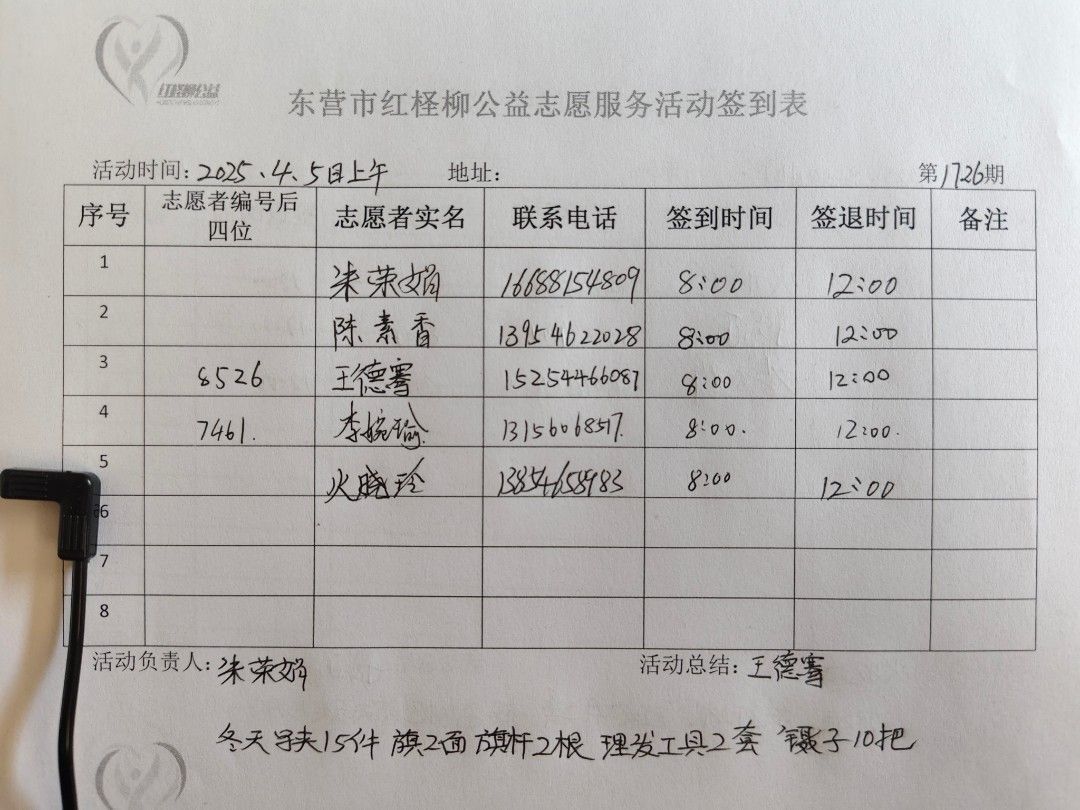 红柽柳公益
东营市红柽柳公益志愿服务活动签到表
活动时间：2025、4、5日上午 地址： 第1726期
序号 志愿者编号后四位 志愿者实名 联系电话 签到时间 签退时间 备注
1 朱荣娟 16688154809 8:00 12:00
2 陈素香 13954622028 8:00 12:00
3 8526 王德骞 15254466087 8:00 12:00
4 7461. 李婉瑜 13156068517. 8:00. 12:00.
5 火晓玲 13854658983 8:00 12:00
6
7
8
活动负责人：朱荣娟 活动总结：王德骞
冬天 15件 旗2面 旗杆2根 理发工具2套 镊子10把